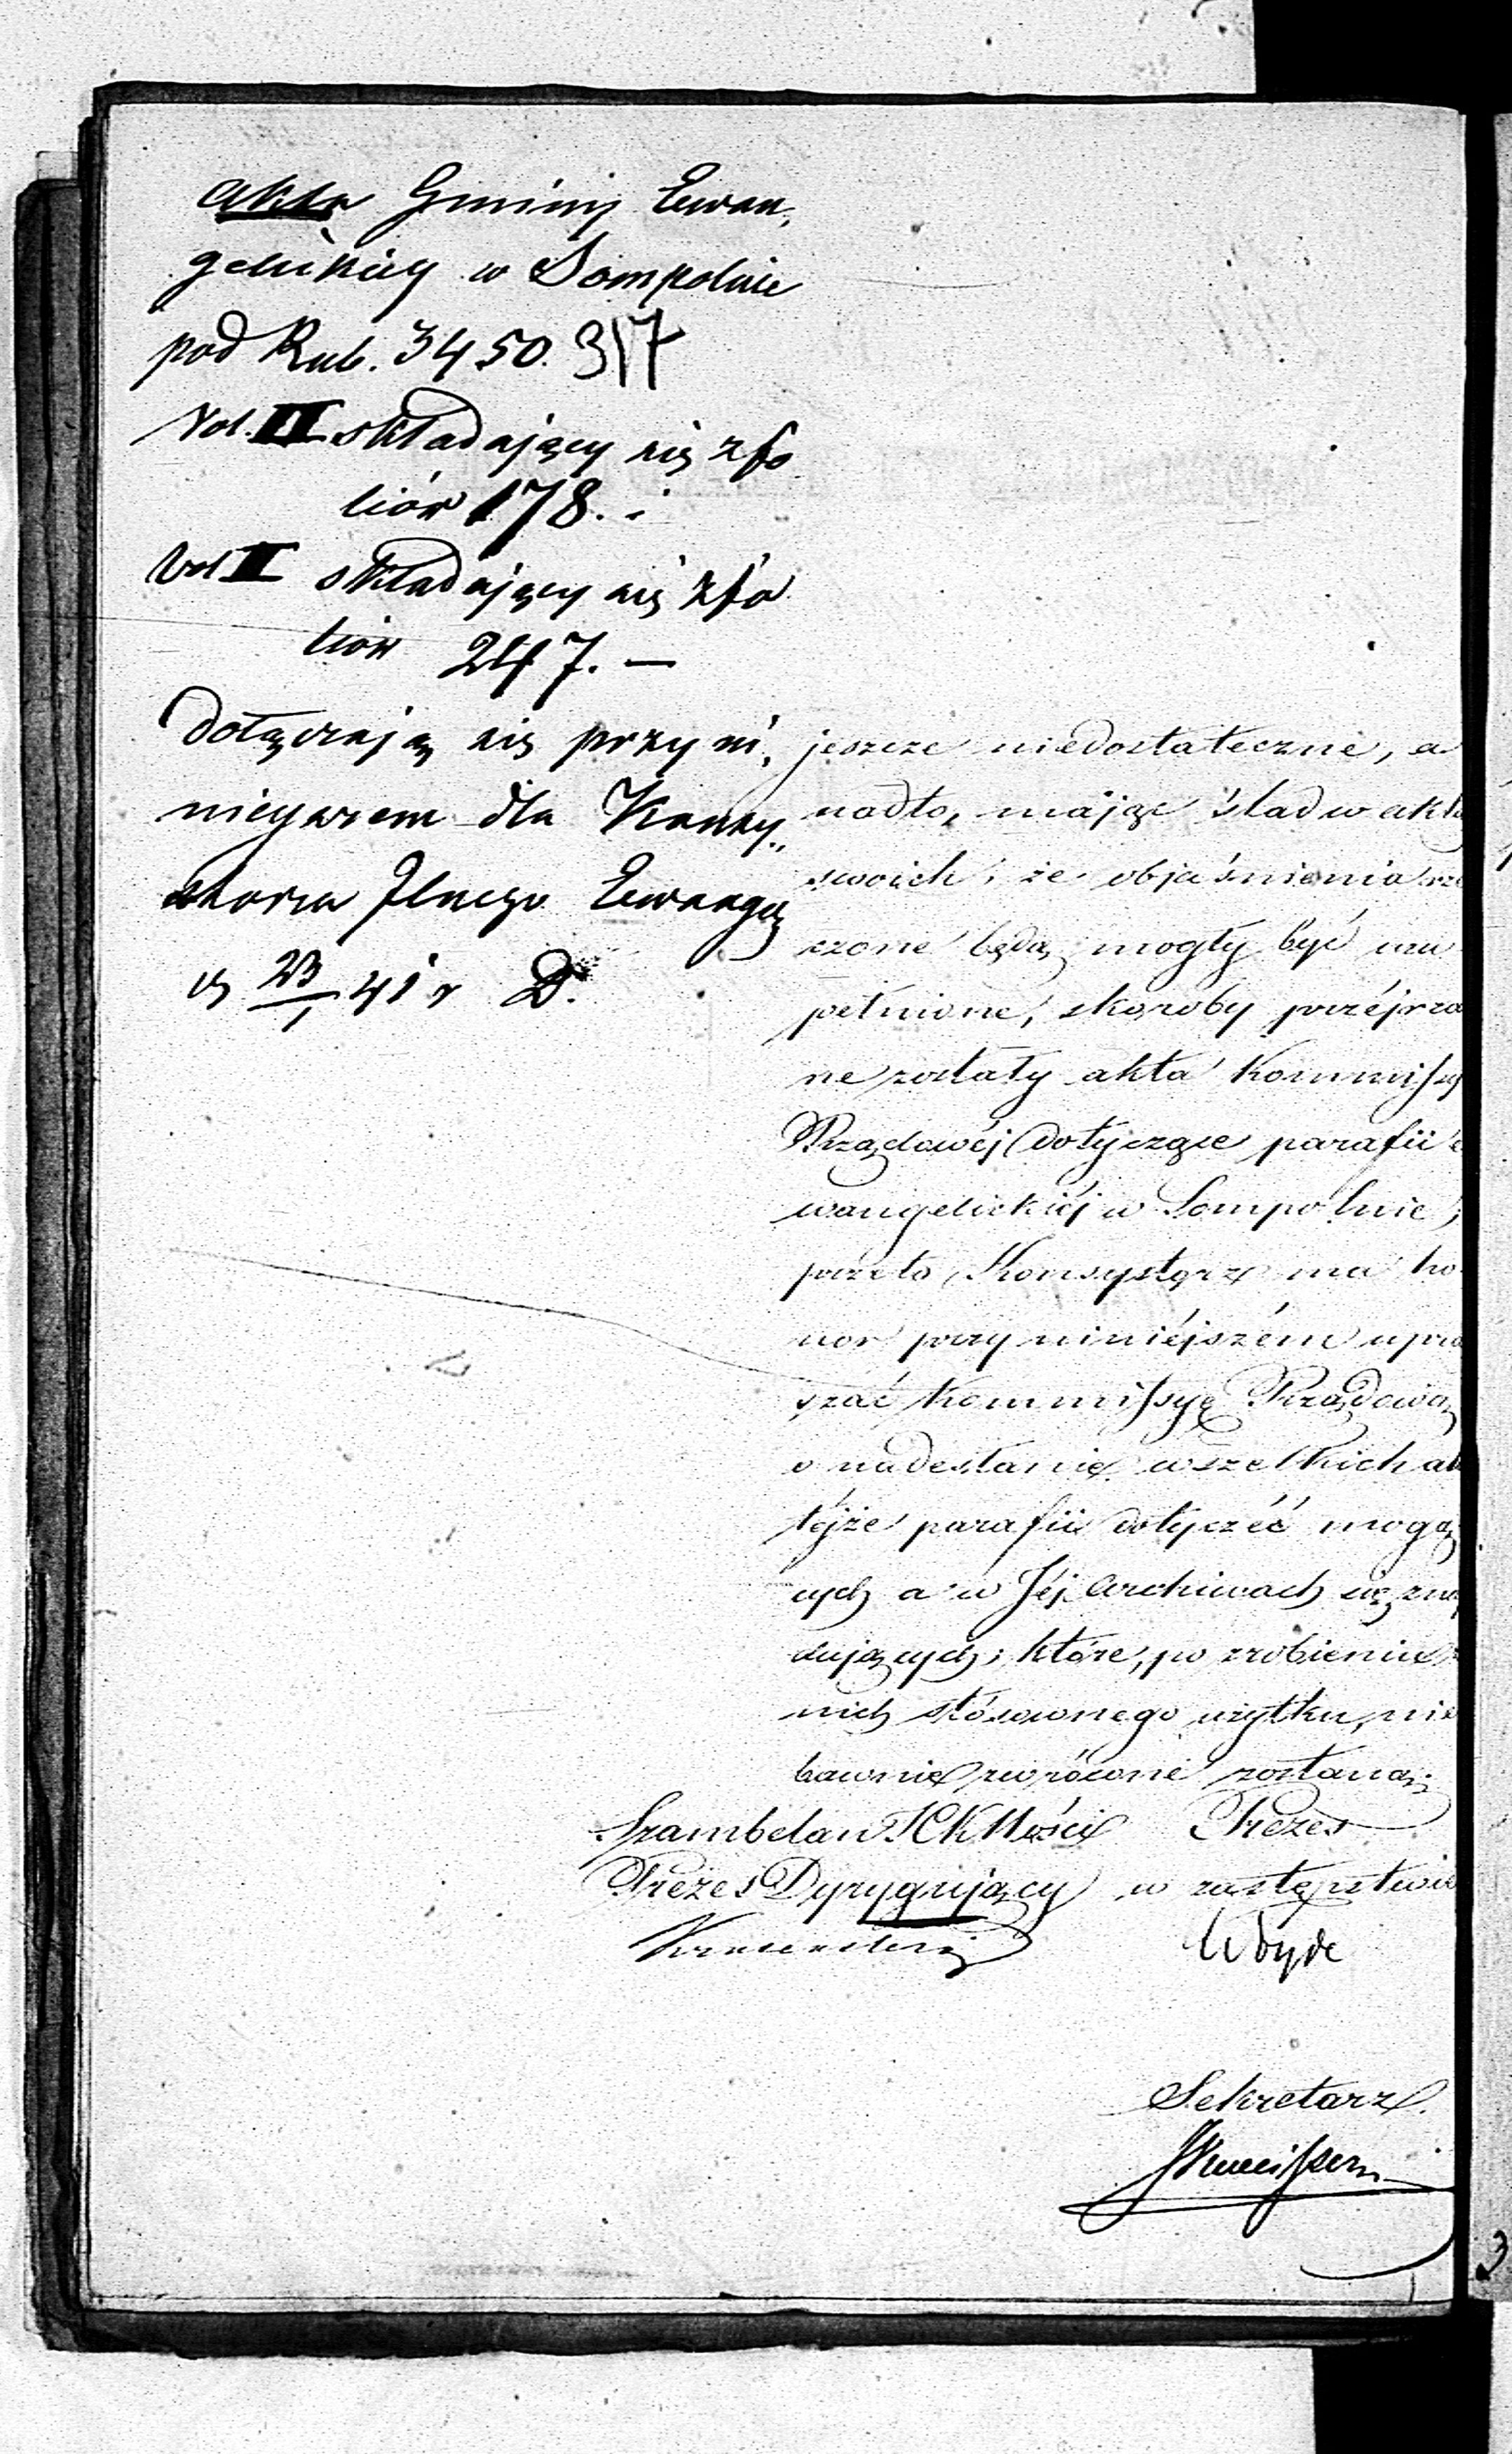 akta Gminy Ewan,
gelickiey w Sompolnie
pod Rub. 3450. 317
Vol. II składający się z fo
liów 178. i
Vol II składający się z fo
liów 247. —
dołączają się przy ni,
nieyszem dla Konsy,,
storza Jlnego Ewangel
23/1 41 r D.
jeszcze niedostateczne, a
nadto, mając ślad w akta
swoich, że objaśnienia rze
czone będą mogły być uzu
pełnione, skoroby przéjrza
ne zostały akta Kommissyi
Rządowéj dotyczące parafii e
wangelickiéj w Sompolnie,
przeto Konsystorz ma ho
nor przy niniéjszém upra
szać Kommissyę Rządową
o nadesłanie wszelkich akt
téjże parafii dotyczéć mogą
cych a w Jéj Archiwach się znaj
dujących; które, po zrobieniu z
nich stósownego użytku, nie
bawnie zwrócone zostaną.
Szambelan JCK Mości Prezes
Prezes Dyrygujący w zastępstwie
Sekretarz